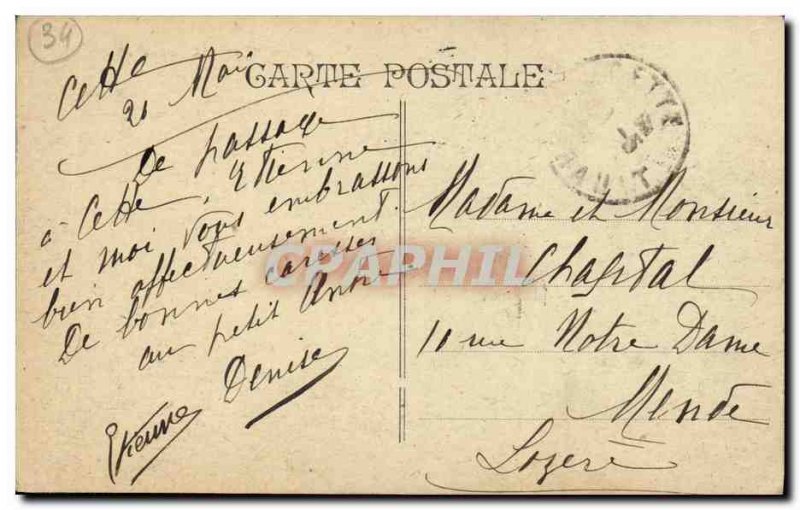 34
CARTE POSTALE
Cette
21 Mai
De passage
à Cette, Etienne
et moi vous embrassons
bien affectueusement.
De bonnes caresses
au petit André
Denise
Etienne
CETTE
HAULT
Madame et Monsieur
Chaptal
10 rue Notre Dame
Mende
Lozere
CPAPHIL